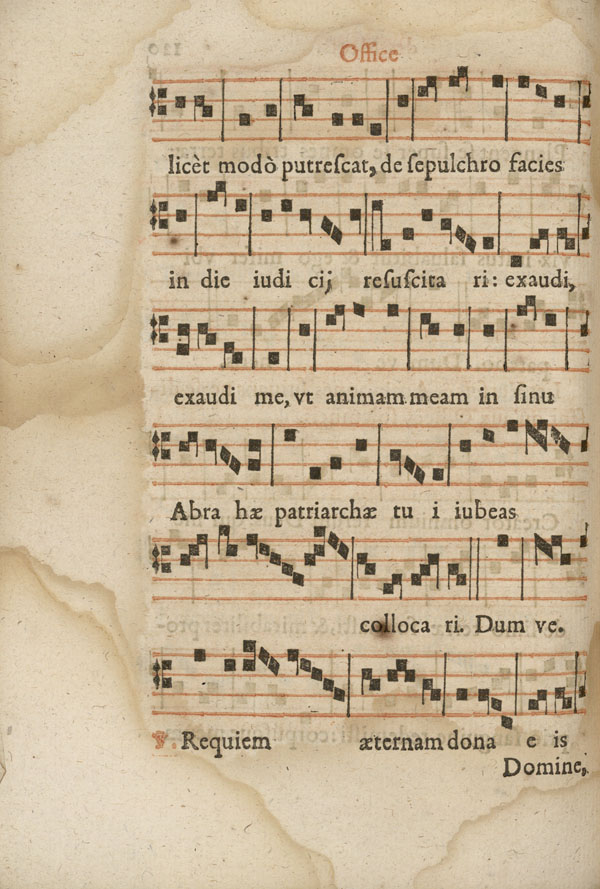 Office
licèt modò putreſcat, de ſepulchro facies
in die iudi cij reſuſcita ri: exaudi,
exaudi me, vt animam meam in ſinu
Abra hæ patriarchæ tu i iubeas
colloca ri. Dum ve.
℣. Requiem æternam dona e is
Domine,